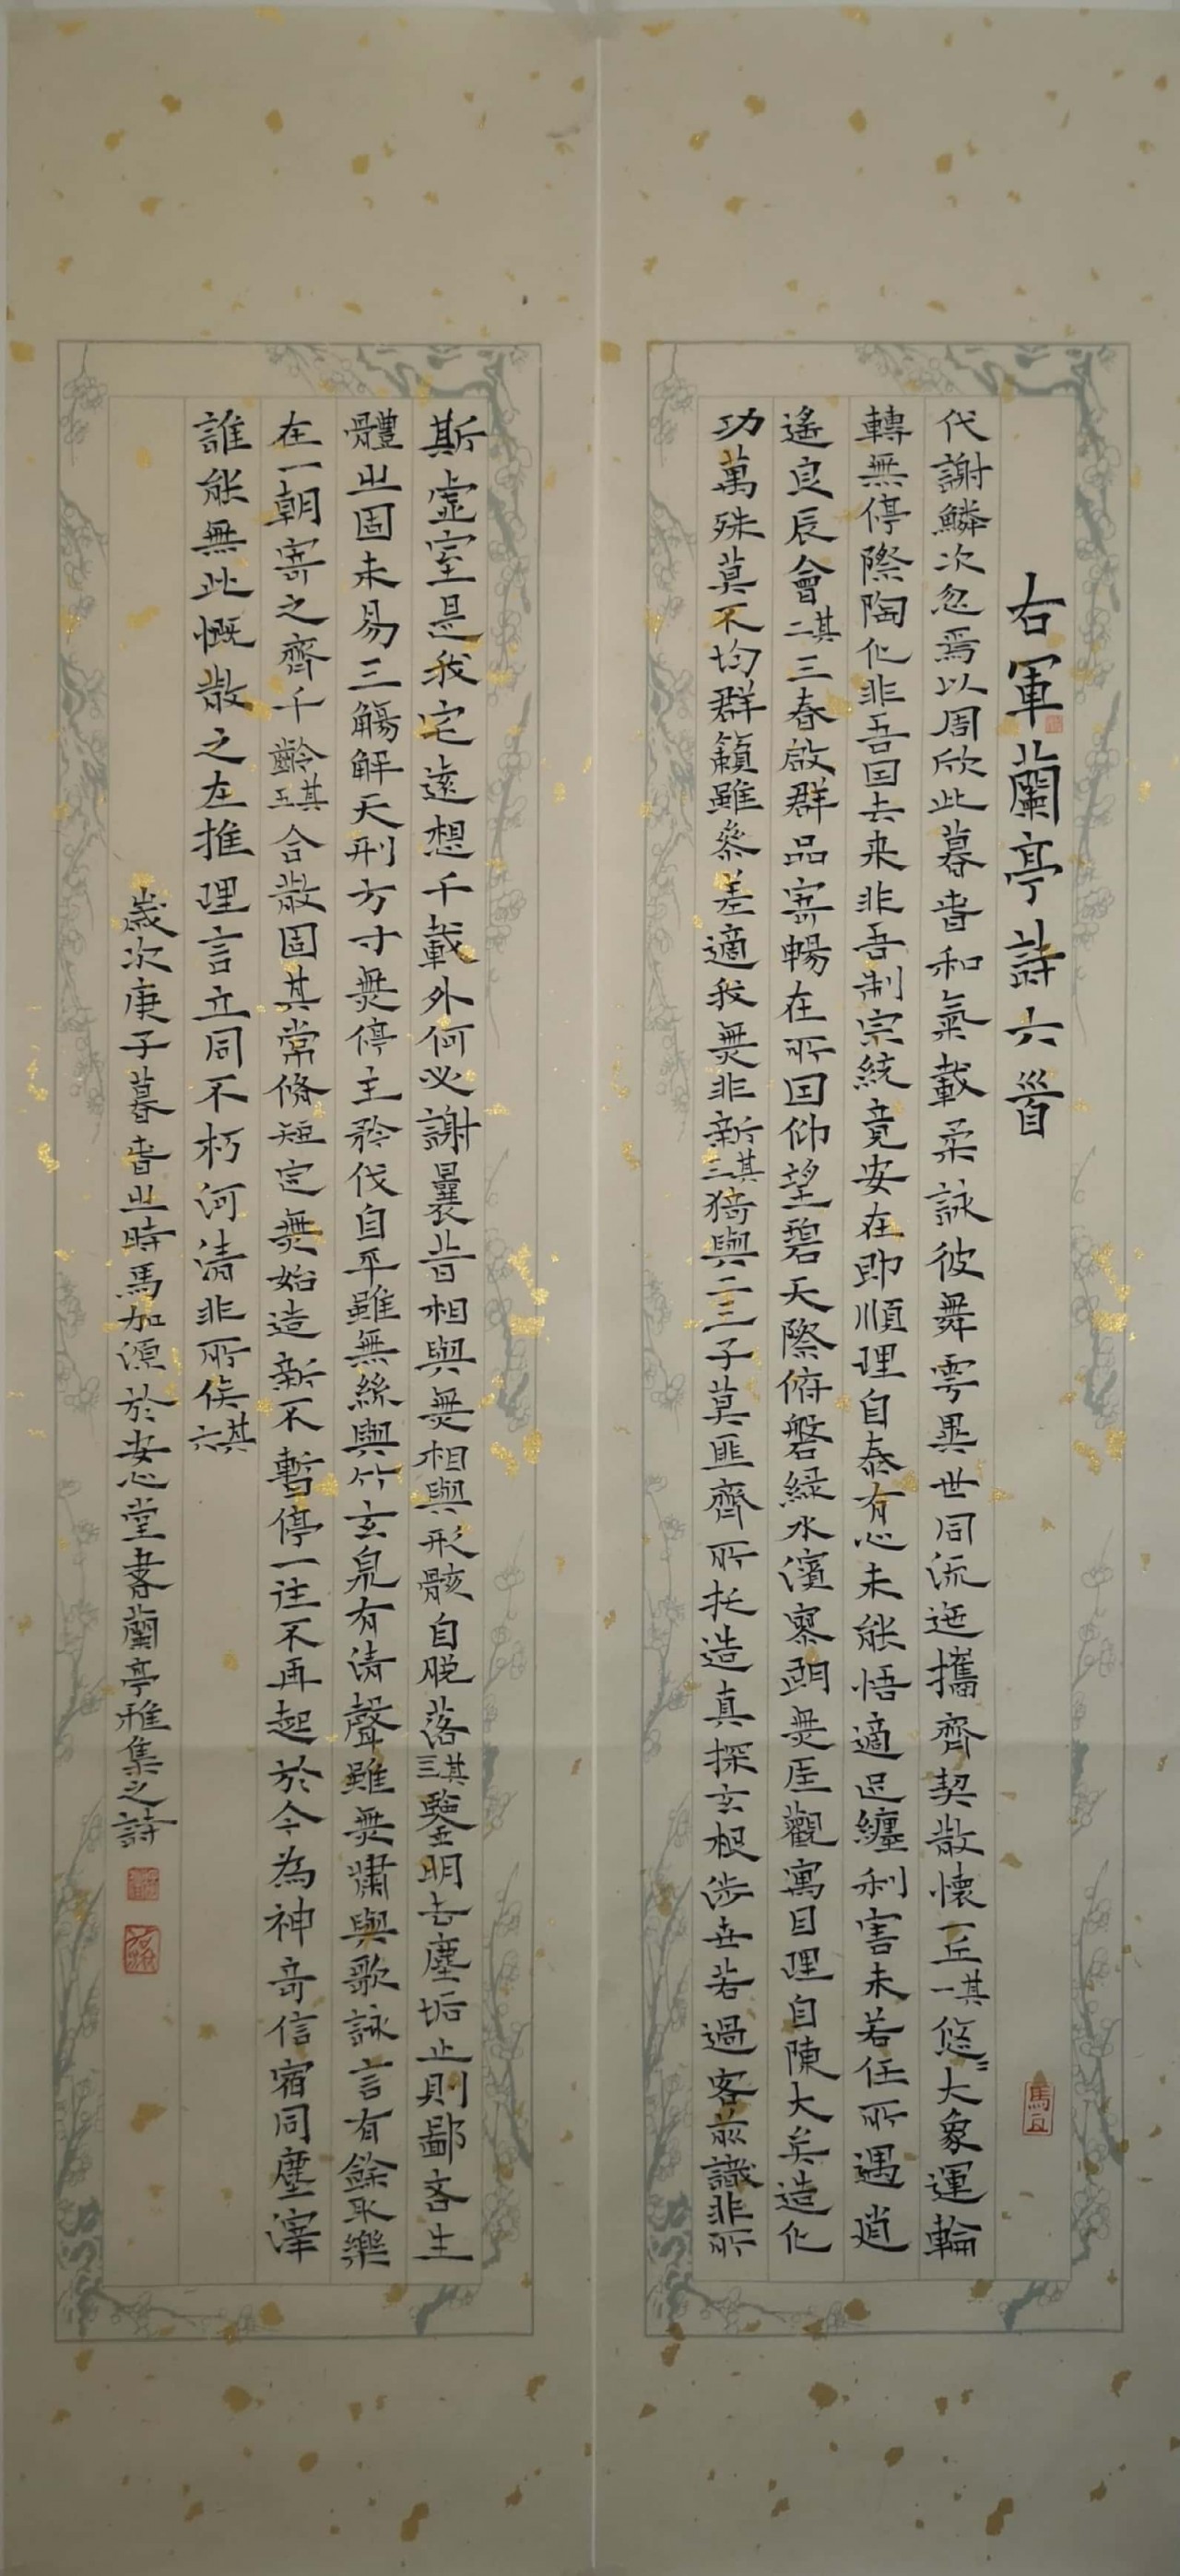 右軍蘭亭詩六首
代謝鱗次忽焉以周欣此暮春和氣載柔詠彼舞雩異世同流迤攜齊契散懷一丘其一悠〻大象運輪
轉無停際陶化非吾因去来非吾制宗統竟安在即順理自泰有心未能悟適足纏利害未若任所遇逍
遙良辰會其二三春啟群品寄暢在所因仰望碧天際俯磐緑水濱寥朗無厓觀寓目理自陳大矣造化
功萬殊莫不均群籟雖叅差適我無非新其三猗與二三子莫匪齊所托造真探玄根涉世若過客前識非所
斯虛室是我宅遠想千載外何必謝曩昔相與無相與形骸自脱落其三鑒明去塵垢止則鄙吝生
體之固未易三觴解天刑方寸無停主矜伐自平雖無絲與竹玄泉有清聲雖無嘯與歌詠言有餘取樂
在一朝寄之齊千齡其五合散固其常脩短定無始造新不暫停一往不再起於今為神奇信宿同塵滓
誰能無此慨散之在推理言立同不朽河清非所俟其六
歲次庚子暮春之時馬加源於安心堂書蘭亭雅集之詩